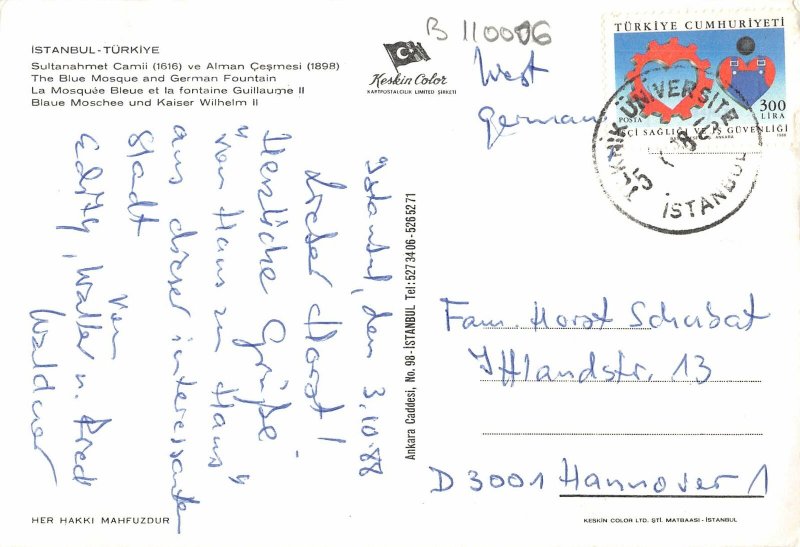 İSTANBUL-TÜRKİYE
Sultanahmet Camii (1616) ve Alman Çeşmesi (1898)
The Blue Mosque and German Fountain
La Mosquée Bleue et la fontaine Guillaume II
Blaue Moschee und Kaiser Wilhelm II
Keskin Color
KARTPOSTALCILIK LIMITED ŞİRKETİ
B 110006
West
German
TÜRKİYE CUMHURİYETİ
300
LİRA
POSTA
İŞÇİ SAĞLIĞI VE İŞ GÜVENLİĞİ
TEKNİK ÜNİVERSİTE
İSTANBUL
Istanbul, den 3.10.88
Lieber Horst!
Herzliche Grüße
"von Haus zu Haus"
aus dieser interessanten
Stadt
Von
Edith, Walter u. Fred
Waldner
Ankara Caddesi, No. 98-İSTANBUL Tel: 5273406-5265271
Fam. Horst Schubat
Ifflandstr. 13
D 3001 Hannover 1
HER HAKKI MAHFUZDUR
KESKİN COLOR LTD. ŞTİ. MATBAASI-İSTANBUL